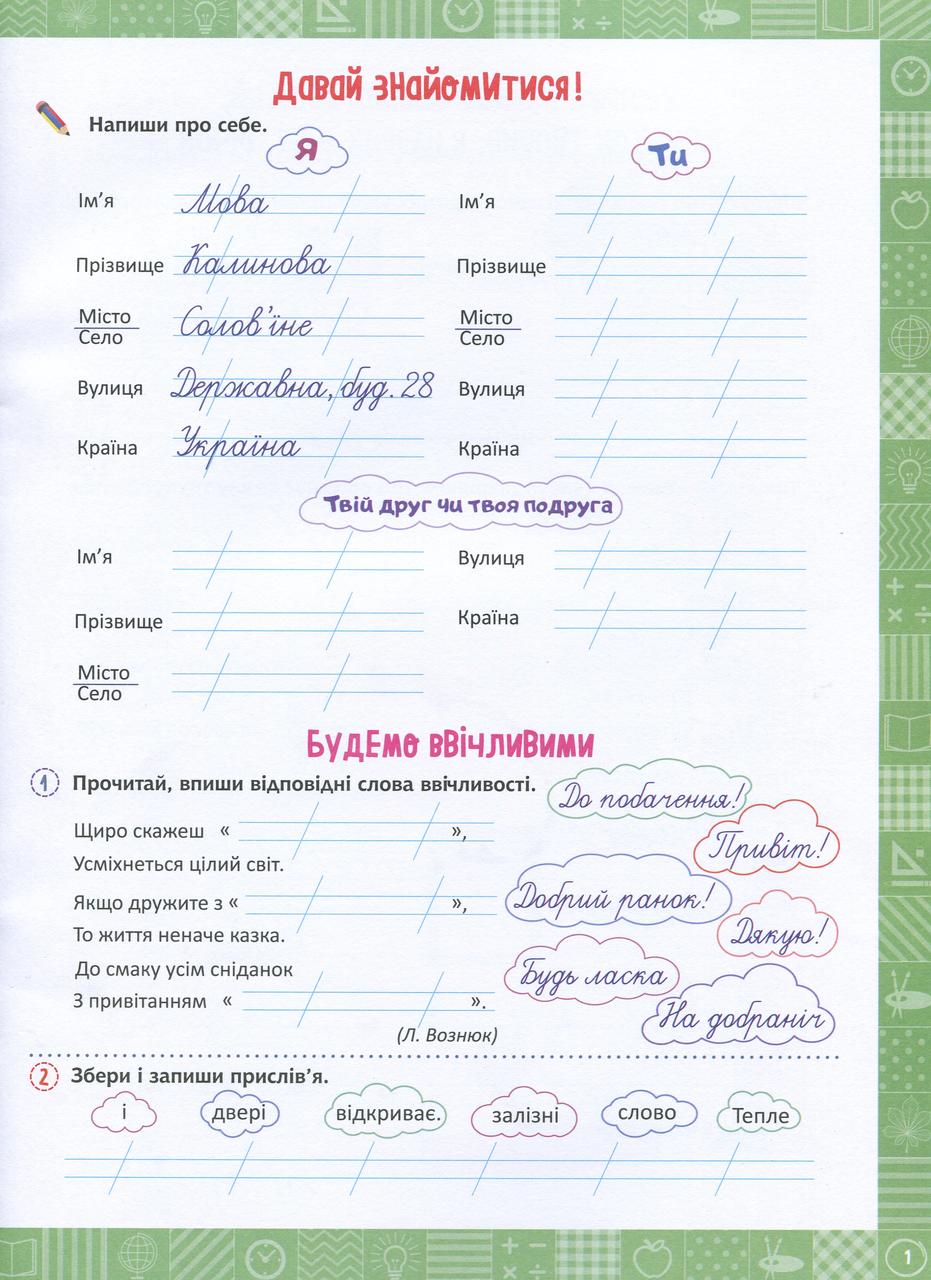 Давай знайомитися!
Напиши про себе.
Я Ти
Ім’я Мова Ім’я
Прізвище Калинова Прізвище
Місто Солов’їне Місто
Село Село
Вулиця Державна, буд. 28 Вулиця
Країна Україна Країна
Твій друг чи твоя подруга
Ім’я Вулиця
Прізвище Країна
Місто
Село
Будемо ввічливими
1 Прочитай, впиши відповідні слова ввічливості.
До побачення!
Щиро скажеш « »,
Привіт!
Усміхнеться цілий світ.
Якщо дружите з « »,
Добрий ранок!
То життя неначе казка.
Дякую!
До смаку усім сніданок
Будь ласка
З привітанням « ».
На добраніч
(Л. Вознюк)
2 Збери і запиши прислів’я.
і двері відкриває. залізні слово Тепле
1